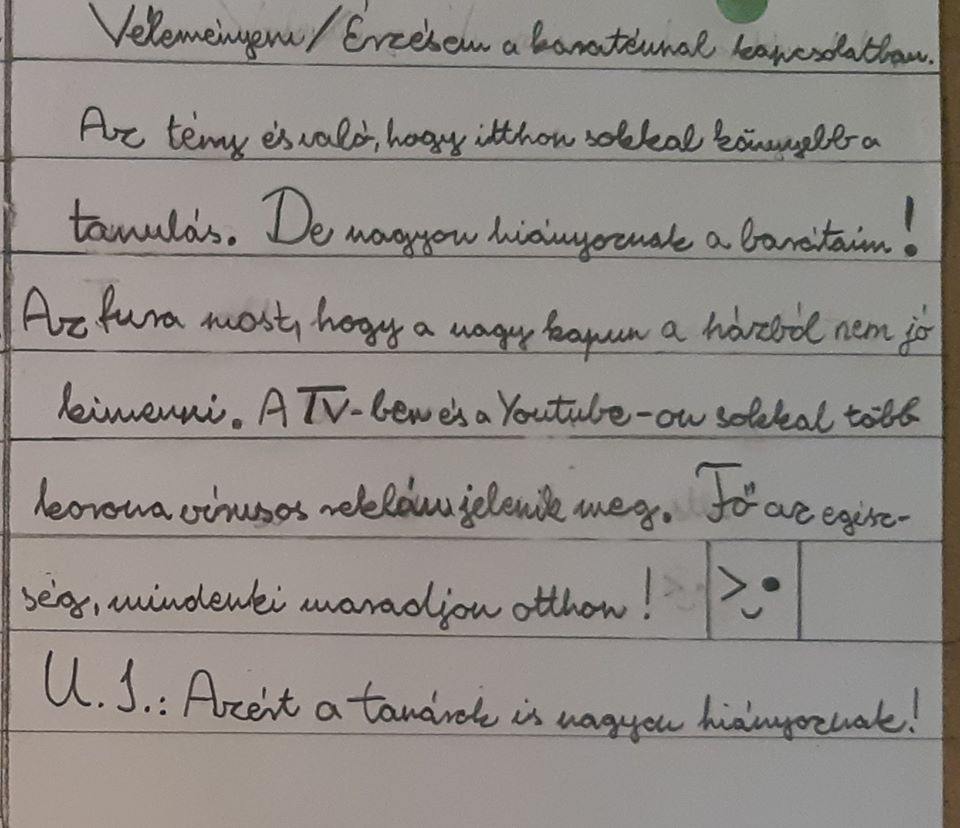 Véleményem/Érzésem a karaténnal kapcsolatban.
Az tény és való, hogy itthon sokkal könnyebb a
tanulás. De nagyon hiányoznak a barátaim!
Az fura most, hogy a nagy kapun a házból nem jó
kimenni. A TV-ben és a Youtube-on sokkal több
korona vírusos reklám jelenik meg. Fő az egész-
ség, mindenki maradjon otthon!
U.I.: Azért a tanárok is nagyon hiányoznak!